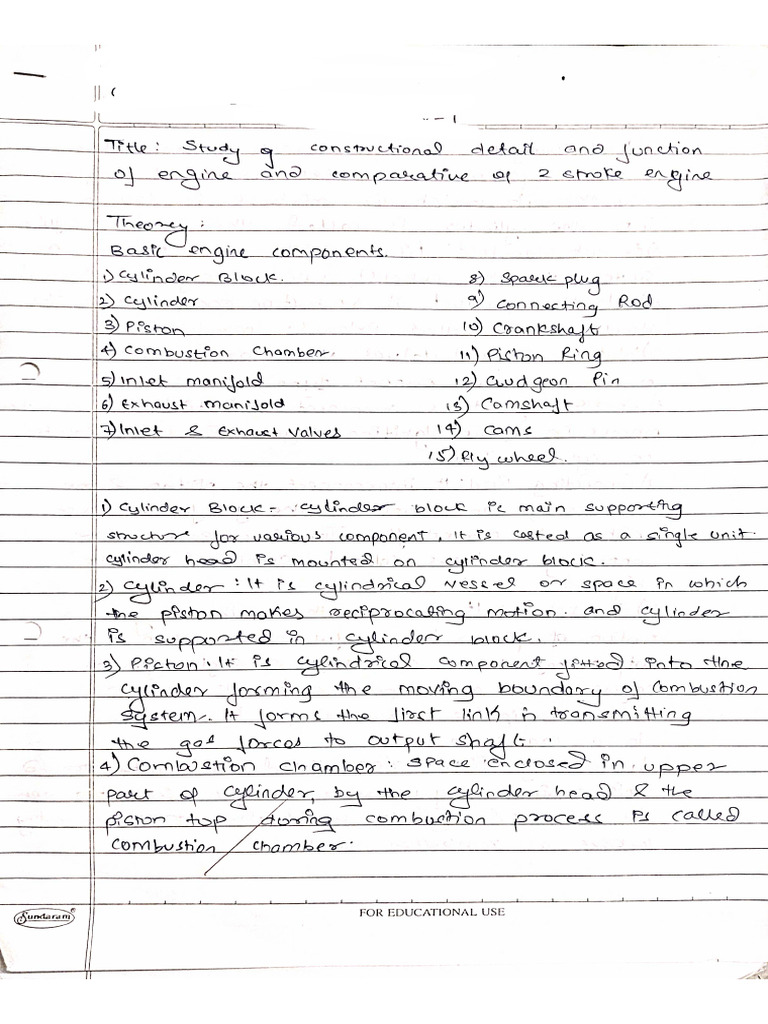 - 1
Title: Study of constructional detail and function
of engine and comparative of 2 stroke engine
Theorey:
Basic engine components.
1) Cylinder Block.
2) Cylinder
3) Piston
4) Combustion Chamber.
5) Inlet manifold
6) Exhaust manifold
7) Inlet & Exhaust Valves
8) Spark plug
9) Connecting Rod
10) Crankshaft
11) Piston Ring
12) Gudgeon Pin
13) Camshaft
14) Cams
15) Fly wheel.
1) Cylinder Block - cylinder block is main supporting
structure for various component, It is casted as a single unit.
cylinder head is mounted on cylinder block.
2) Cylinder: It is cylindrical vessel or space in which
the piston makes reciprocating motion. and cylinder
is supported in cylinder block.
3) Piston: It is cylindrical component fitted into the
cylinder forming the moving boundary of combustion
system. It forms the first link in transmitting
the gas forces to output shaft.
4) Combustion chamber: space enclosed in upper
part of cylinder, by the cylinder head & the
piston top during combustion process is called
combustion chamber.
Sundaram
FOR EDUCATIONAL USE